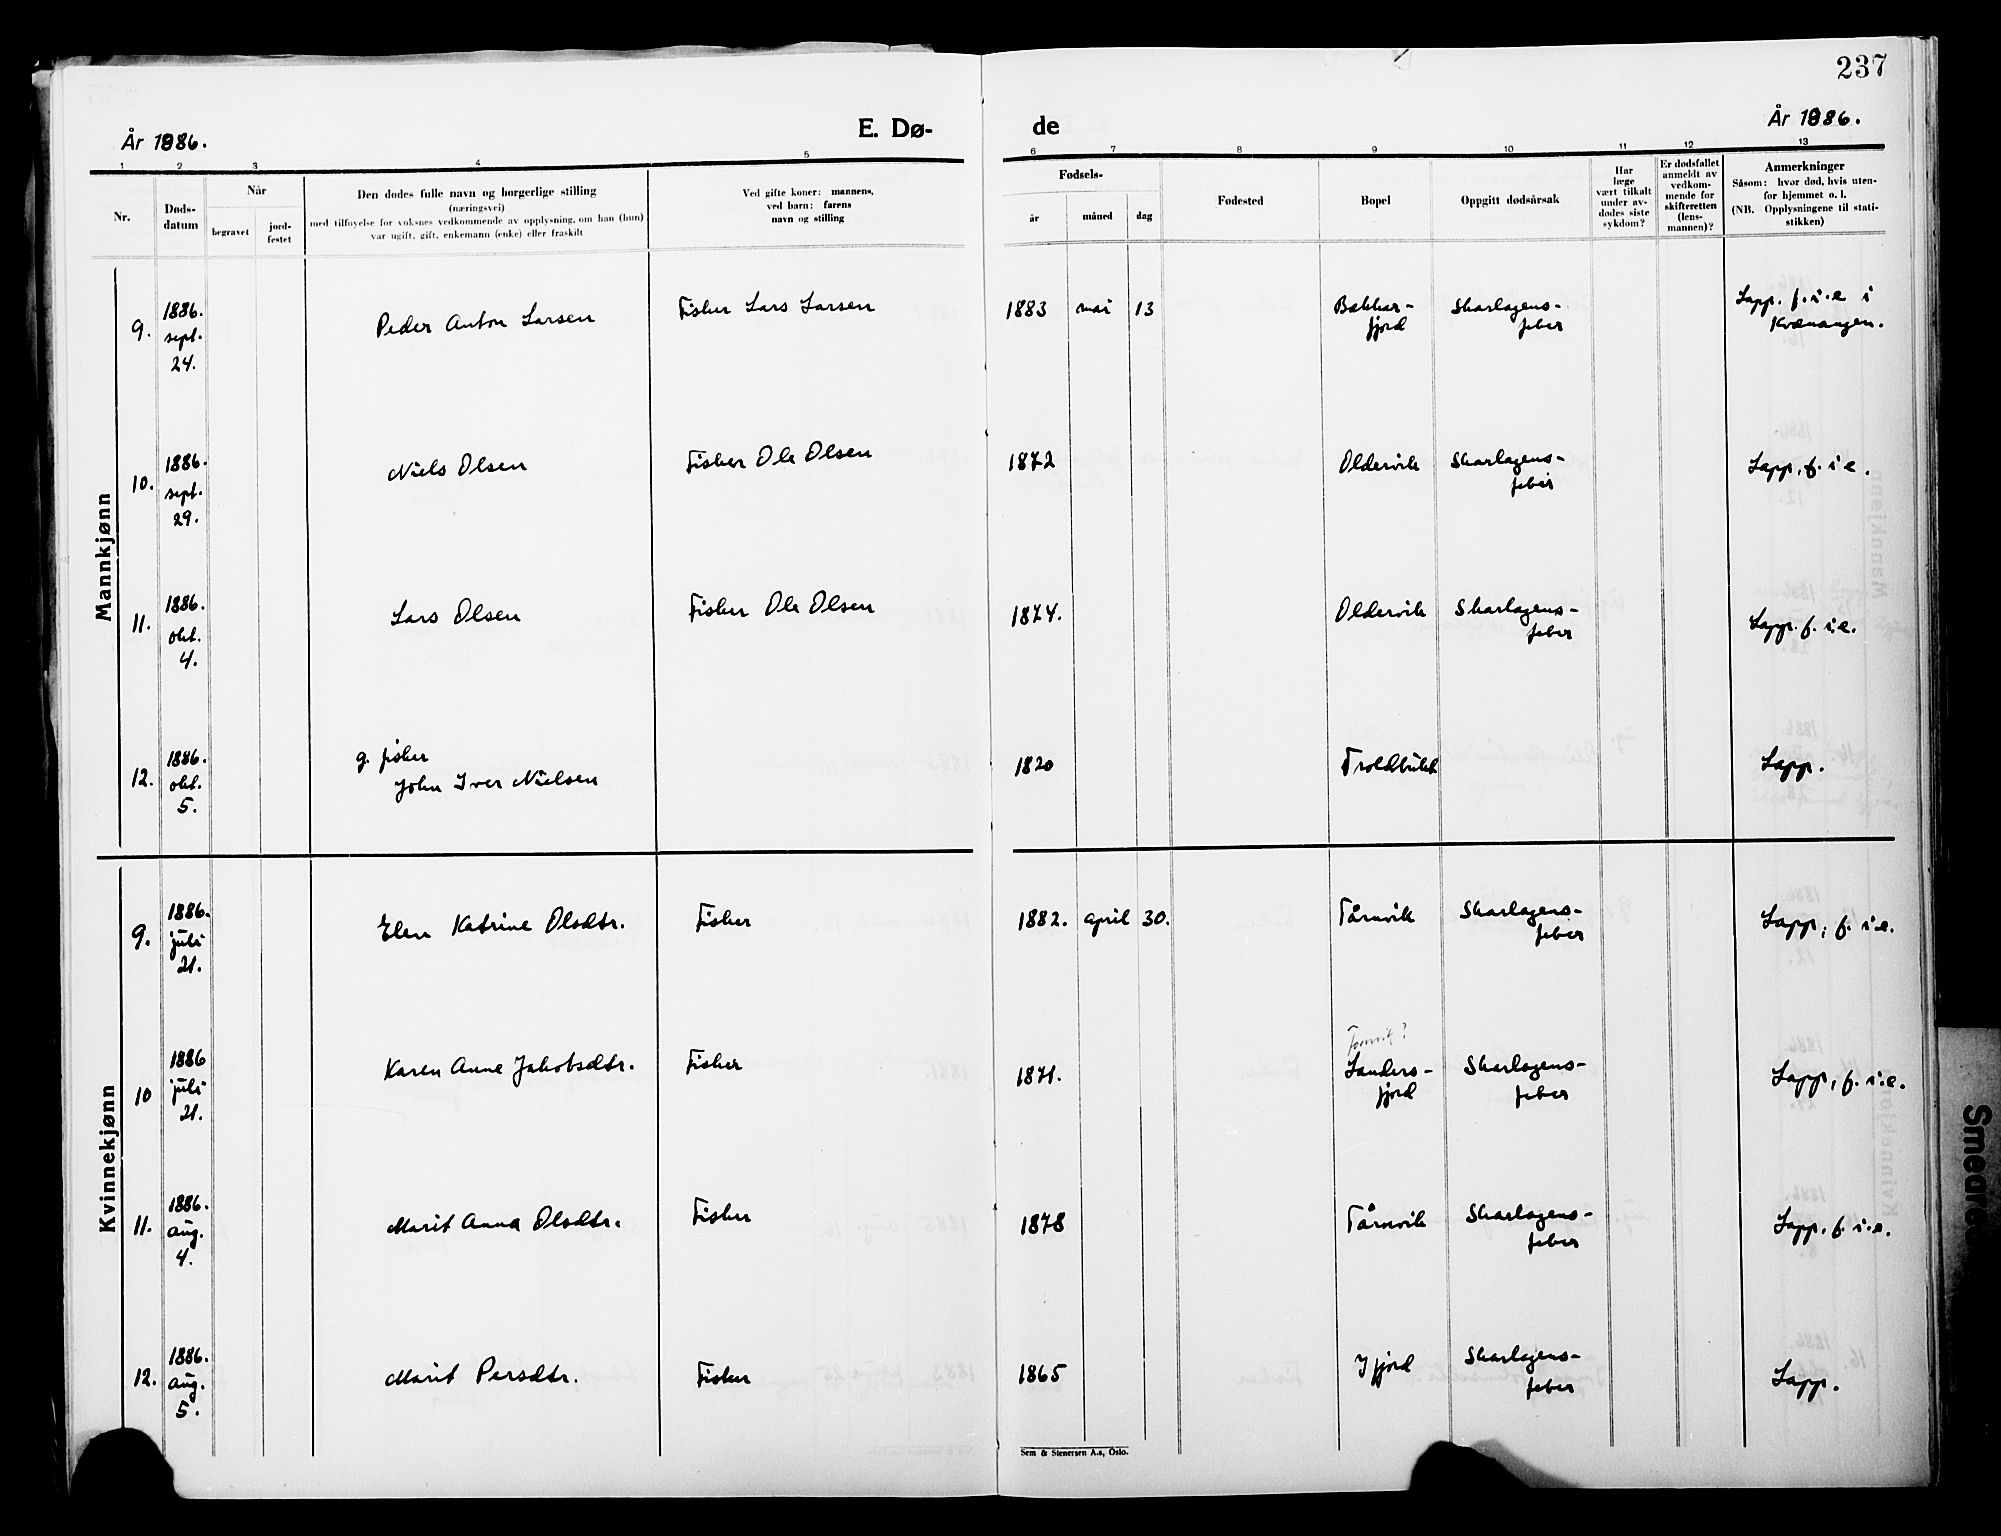 237
År 1886.
E. Dø-
de
År 1886.
1 2 3 4 5 6 7 8 9 10 11 12 13
Nr.
Døds-
datum
Når
begravet
jord-
festet
Den dødes fulle navn og borgerlige stilling
(næringsvei)
med tilføyelse for voksnes vedkommende av opplysning, om han (hun)
var ugift, gift, enkemann (enke) eller fraskilt
Ved gifte koner: mannens,
ved barn: farens
navn og stilling
Fødsels-
år
måned
dag
Fødested
Bopel
Oppgitt dødsårsak
Har
læge
vært tilkalt
under av-
dødes siste
sykdom?
Er dødsfallet
anmeldt av
vedkom-
mende for
skifteretten
(lens-
mannen)?
Anmerkninger
Såsom: hvor død, hvis uten-
for hjemmet o. l.
(NB. Opplysningene til stati-
stikken)
Mannkjønn
9.
1886.
sept.
24.
Peder Anton Larsen
Fisker Lars Larsen
1883 mai 13
Bakkar-
fjord
Skarlagens-
feber
Lapp. f.i.e i
Kvænangen.
10.
1886.
sept.
29.
Niels Olsen
Fisker Ole Olsen
1872
Oldervik
Skarlagens-
feber
Lapp, f. i e.
11.
1886.
okt.
4.
Lars Olsen
Fisker Ole Olsen
1874.
Oldervik
Skarlagens-
feber
Lapp. f. i.e.
12.
1886.
okt.
5.
g. fisker
John Iver Nielsen
1820
Troldbukt
Lapp.
Kvinnekjønn
9.
1886.
juli
21.
Elen Katrine Olsdtr.
Fisker
1882. april 30.
Tårnvik
Skarlagens-
feber
Lapp, f. i.e.
10
1886
juli
21.
Karen Anne Jakobsdtr.
Fisker
1871.
Tømvik?
Landers-
fjord
Skarlagens-
feber
Lapp, f. i.e.
11.
1886.
aug.
4.
Marit Anna Olsdtr.
Fisker
1878
Tårnvik
Skarlagens-
feber
Lapp. f. i.e.
12.
1886.
aug.
5.
Marit Persdtr.
Fisker
1865
Ifjord
Skarlagens-
feber
Lapp.
Sem & Stenersen A.s, Oslo.